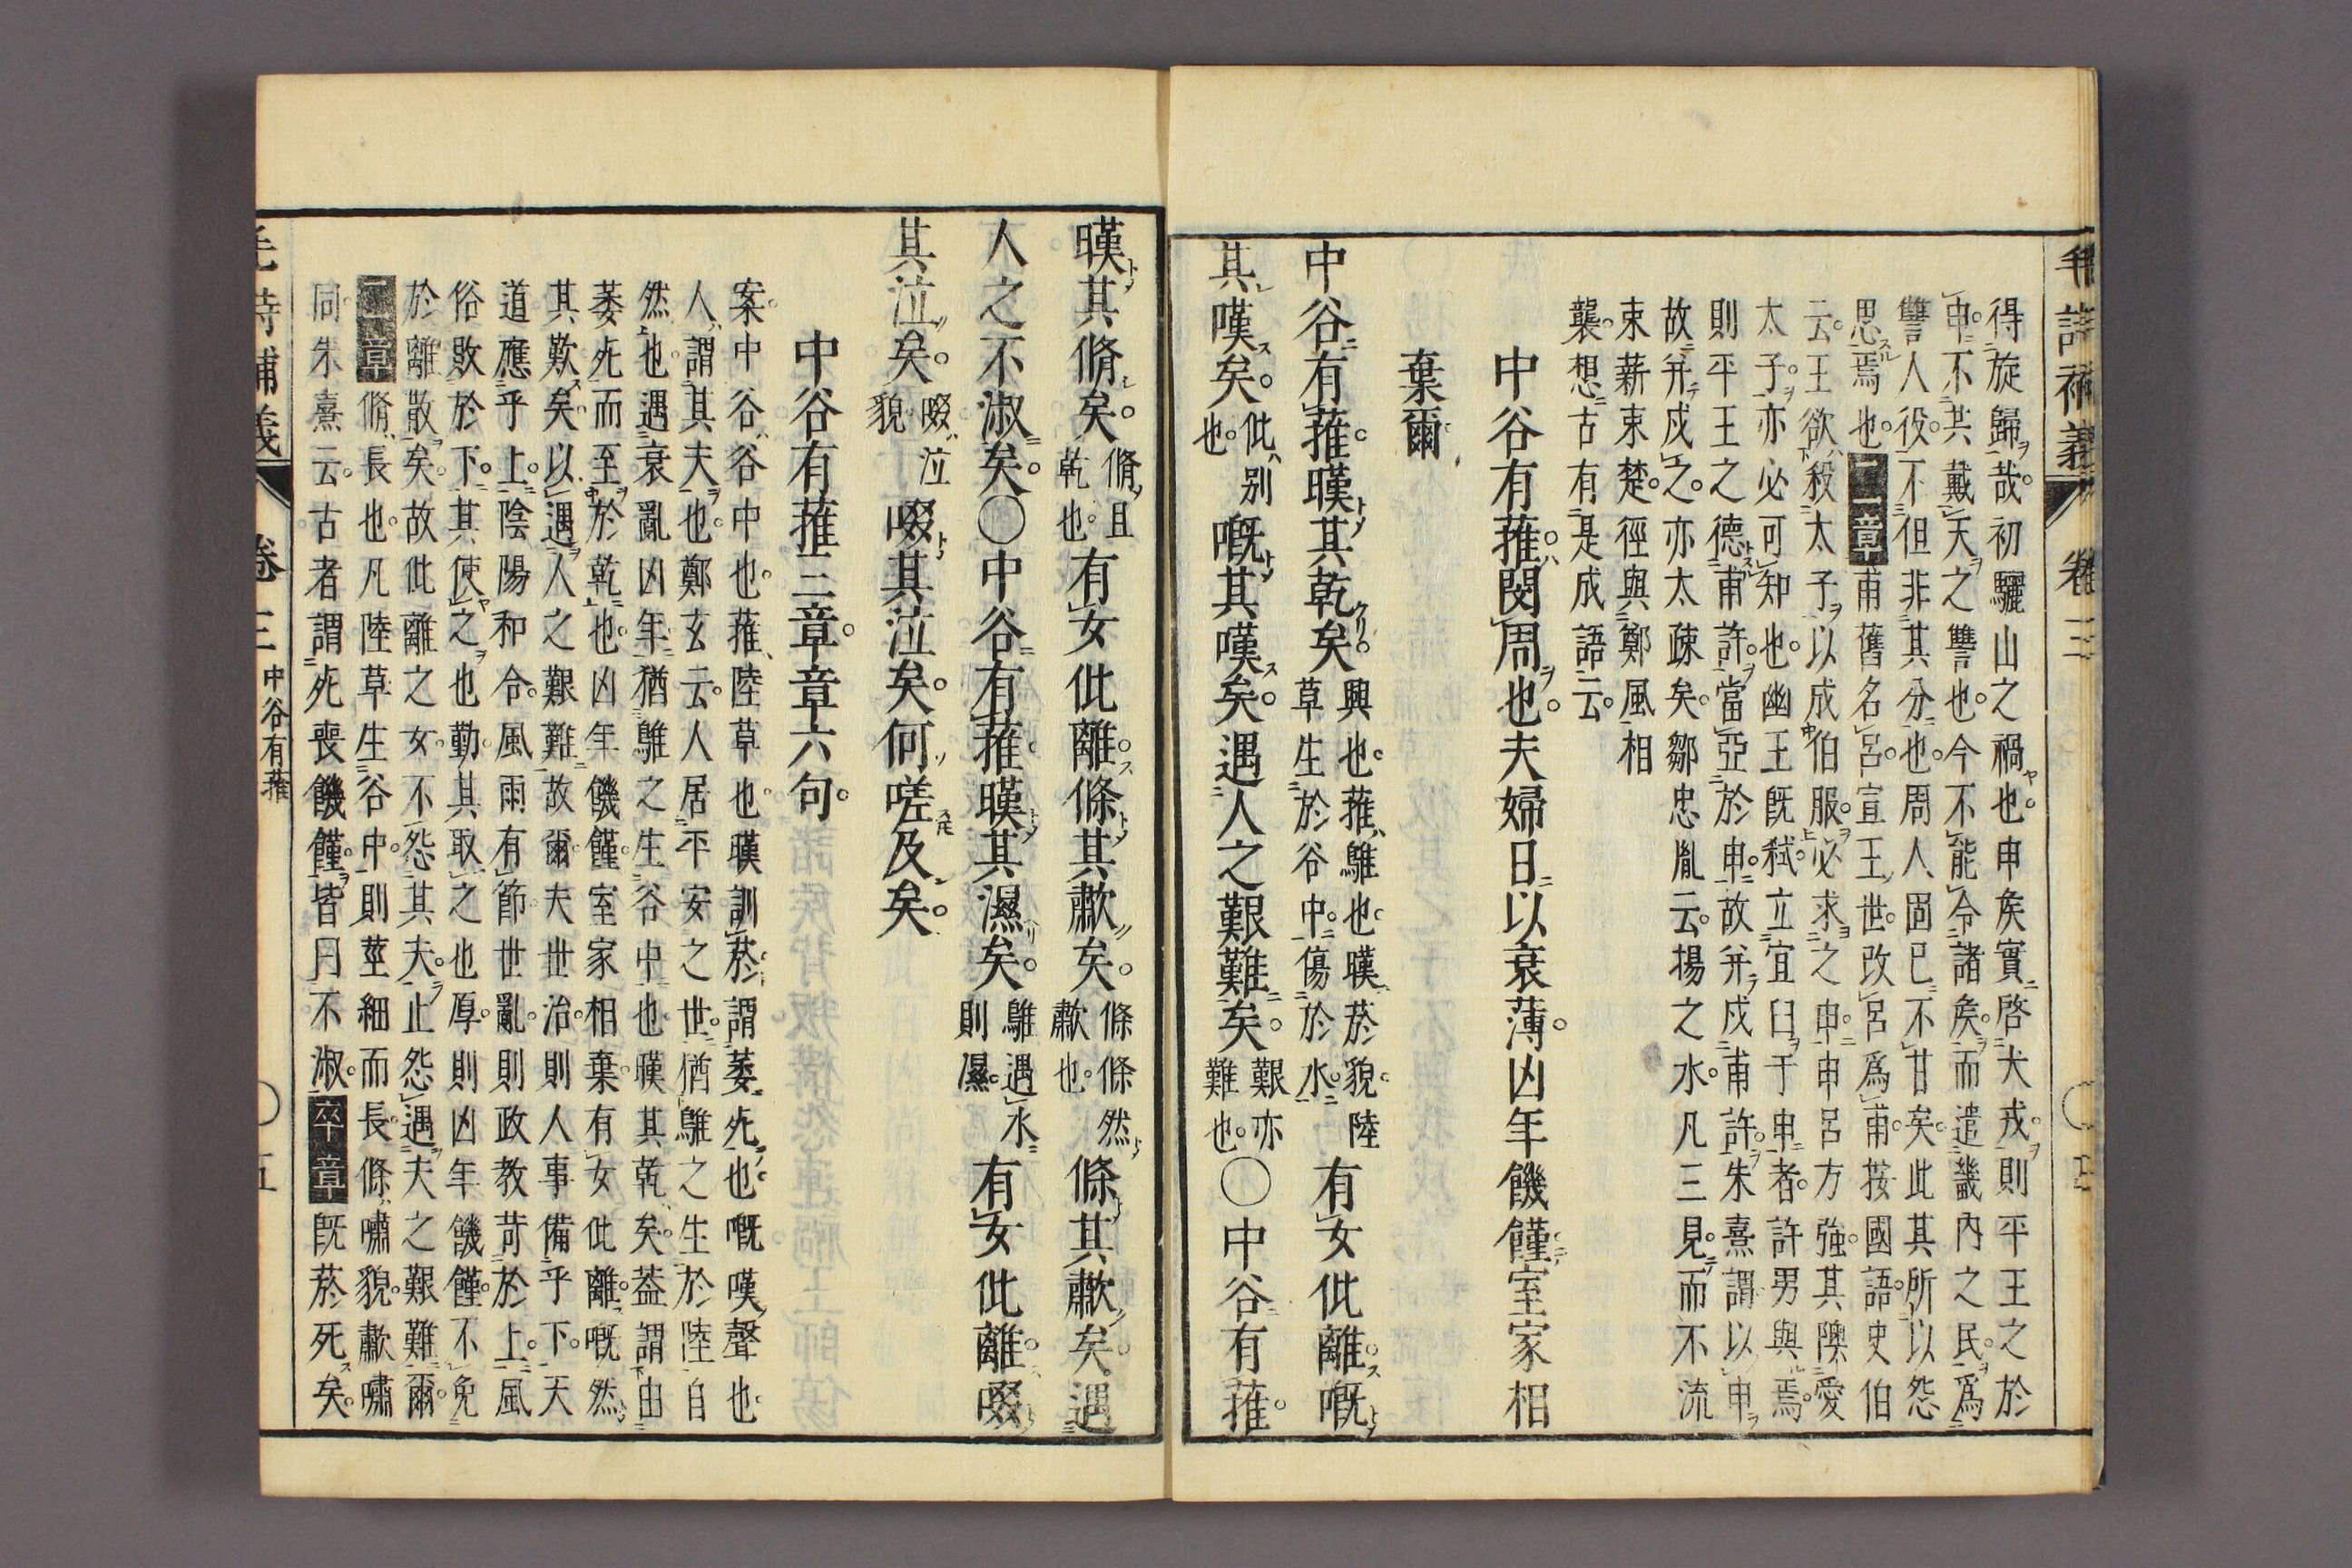 毛詩補義 卷三
得旋歸哉初驪山之禍也申矦實啓犬戎則平王之於
申不共戴天之讐也今不能令諸矦而遣畿內之民爲
讐人役不但非其分也周人固已不甘矣此其所以怨
思焉也二章甫舊名呂宣王世改呂爲甫按國語史伯
云王欲殺太子以成伯服必求之申申呂方強其隩愛
太子亦必可知也幽王旣弒立宜臼于申者許男與焉
則平王之德甫許當亞於申故幷戍甫許朱熹謂以申
故幷戍之亦太疎矣鄒忠胤云揚之水凡三見而不流
束薪束楚徑與鄭風相
襲想古有是成語云
中谷有蓷閔周也夫婦日以衰薄凶年饑饉室家相
棄爾
中谷有蓷暵其乾矣興也蓷鵻也暵菸貌陸草生於谷中傷於水有女仳離嘅
其嘆矣仳別也嘅其嘆矣遇人之艱難矣艱亦難也〇中谷有蓷
暵其脩矣脩且乾也有女仳離條其歗矣條條然歗也條其歗矣遇
人之不淑矣〇中谷有蓷暵其濕矣鵻遇水則濕有女仳離啜
其泣矣啜泣貌啜其泣矣何嗟及矣
中谷有蓷三章章六句
案中谷谷中也蓷陸草也暵訓菸謂萎死也嘅嘆聲也
人謂其夫也鄭玄云人居平安之世猶鵻之生於陸自
然也遇衰亂凶年猶鵻之生谷中也暵其乾矣蓋謂由
萎死而至於乾也凶年饑饉室家相棄有女仳離嘅然
其歎矣以遇人之艱難故爾夫世治則人事備乎下天
道應乎上陰陽和令風雨有節世亂則政教苛於上風
俗敗於下其使之也勤其取之也厚則凶年饑饉不免
於離散矣故仳離之女不怨其夫止怨遇夫之艱難爾
二章脩長也凡陸草生谷中則莖細而長條嘯貌歗嘯
同朱熹云古者謂死喪饑饉皆曰不淑卒章旣菸死矣
毛詩補義 卷三 中谷有蓷 〇五